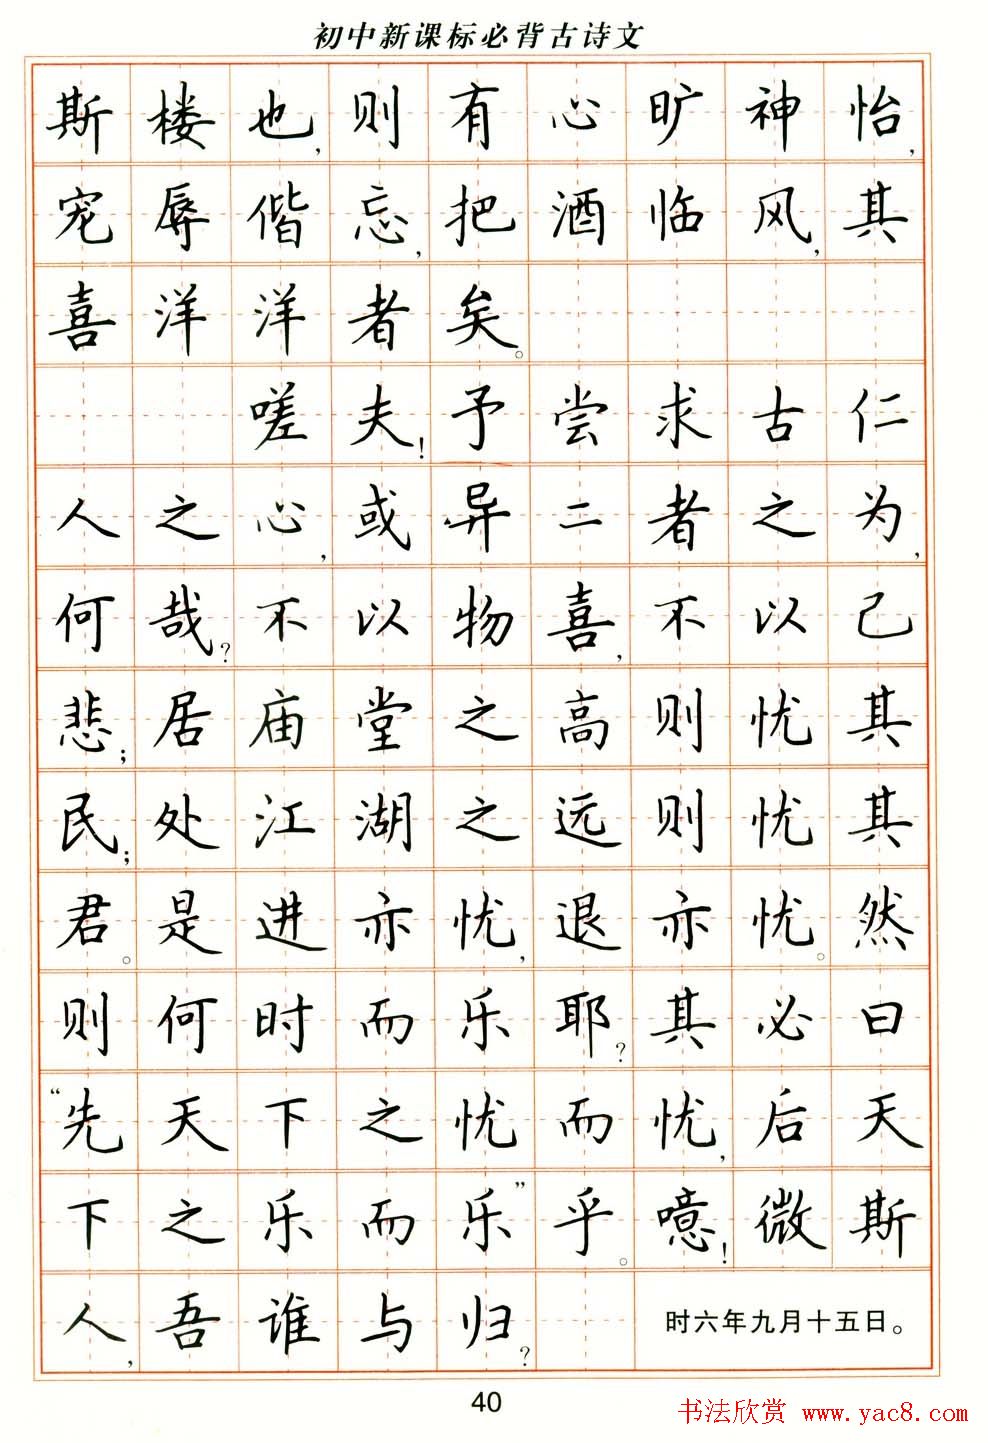 初中新课标必背古诗文
斯楼也,则有心旷神怡,
宠辱偕忘,把酒临风,其
喜洋洋者矣。
嗟夫!予尝求古仁
人之心,或异二者之为,
何哉?不以物喜,不以己
悲;居庙堂之高则忧其
民;处江湖之远则忧其
君。是进亦忧,退亦忧。然
则何时而乐耶?其必曰
“先天下之忧而忧,后天
下之乐而乐”乎。噫!微斯
人,吾谁与归?
时六年九月十五日。
40
书法欣赏 www.yac8.com